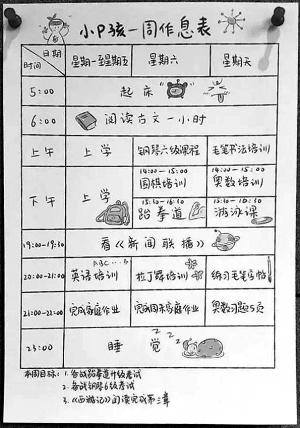 小P孩一周作息表
日期
时间
星期一至星期五 星期六 星期天
5:00 起床
6:00 阅读古文一小时
上午 上学 钢琴六级课程 毛笔书法培训
下午 上学
14:00-15:00 围棋培训
14:00-15:00 奥数培训
15:10-16:30 跆拳道
15:10-16:30 游泳课
19:00-19:30 看《新闻联播》
ABC...
20:00-21:00 英语培训 拉丁舞培训 练习毛笔字帖
21:00-22:00 完成家庭作业 完成周末家庭作业 奥数习题5页
23:00 睡觉 ZZZ
本周目标: 1. 备战跆拳道升级考试
2. 备战钢琴6级考试
3. 《西游记》阅读完成第三章